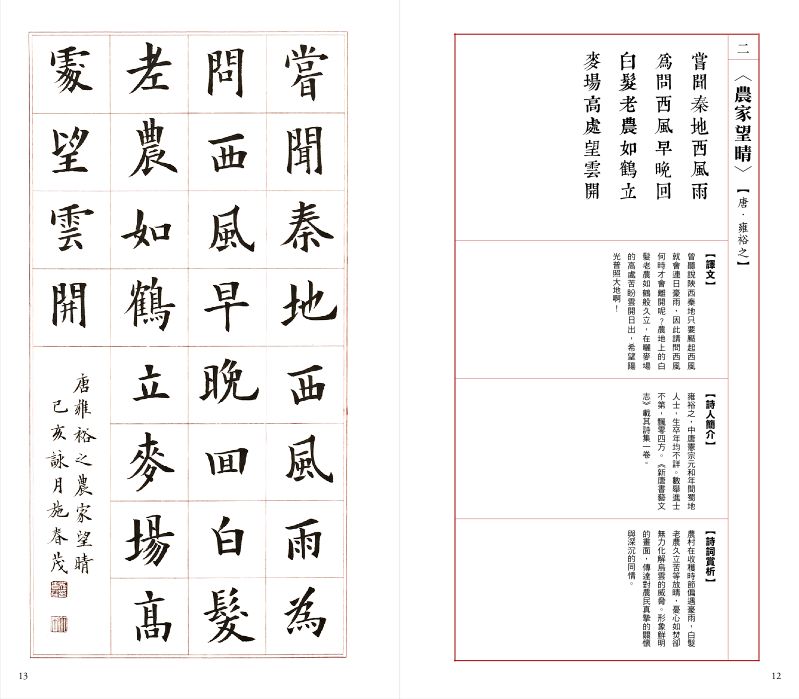 二
〈農家望晴〉
【唐．雍裕之】
嘗聞秦地西風雨
為問西風早晚回
白髮老農如鶴立
麥場高處望雲開
【譯文】
曾聽說陝西秦地只要颳起西風
就會連日豪雨，因此請問西風
何時才會離開呢？農地上的白
髮老農如鶴般久立，在曬麥場
的高處苦盼雲開日出，希望陽
光普照大地啊！
【詩人簡介】
雍裕之，中唐憲宗元和年間蜀地
人士，生卒年均不詳。數舉進士
不第，飄零四方。《新唐書藝文
志》載其詩集一卷。
【詩詞賞析】
農村在收穫時節偏遇豪雨，白髮
老農久立苦等放晴，憂心如焚卻
無力化解烏雲的威脅。形象鮮明
的畫面，傳達對農民真摯的關懷
與深沉的同情。
12
嘗聞秦地西風雨為
問西風早晚回白髮
老農如鶴立麥場高
處望雲開
唐雍裕之農家望晴
己亥詠月施春茂
13